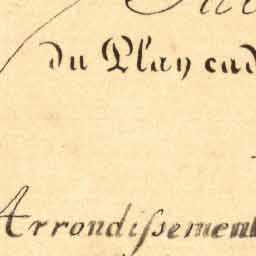 du Plan cad
Arrondissement